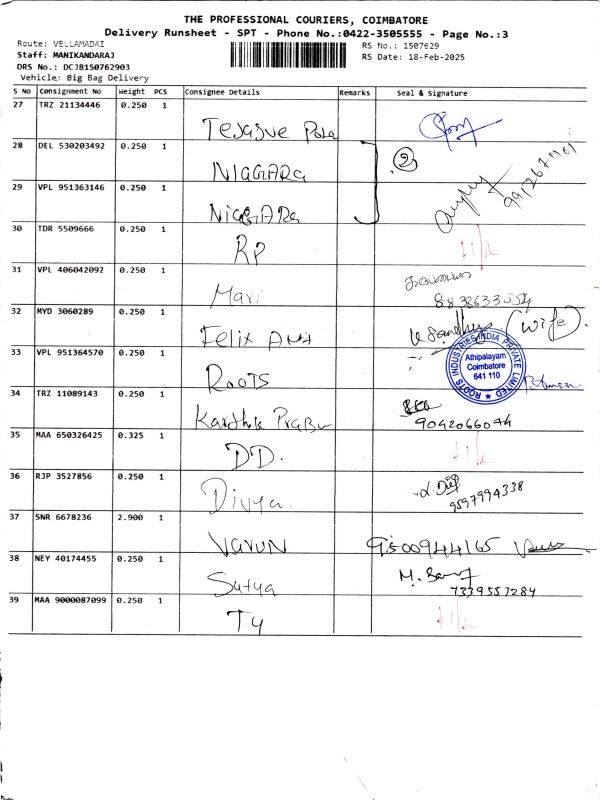 THE PROFESSIONAL COURIERS, COIMBATORE
Delivery Runsheet - SPT - Phone No.:0422-3505555 - Page No.:3
Route: VELLAMADAI
Staff: MANIKANDARAJ
DRS No.: DCJB150762903
Vehicle: Big Bag Delivery
RS No.: 1507629
RS Date: 18-Feb-2025
S No Consignment No Weight PCS Consignee Details Remarks Seal & Signature
27 TRZ 21134446 0.250 1
28 DEL 530203492 0.250 1 NIAGARA 2
29 VPL 951363146 0.250 1 NIAGARA
30 TDR 5509666 0.250 1 RP
31 VPL 406042092 0.250 1 Mari
32 MYD 3060289 0.250 1 Felix (Wife).
33 VPL 951364570 0.250 1 ROOTS
ROOTS INDUSTRIES INDIA PRIVATE LIMITED
Athipalayam
Coimbatore
641 110
34 TRZ 11089143 0.250 1 Karthik Prabu
9042066044
35 MAA 650326425 0.325 1 DD.
36 RJP 3527856 0.250 1 Divya
9597994338
37 SNR 6678236 2.900 1 VARUN 9500944165
38 NEY 40174455 0.250 1 Sutya
7339557284
39 MAA 9000087099 0.250 1 Ty